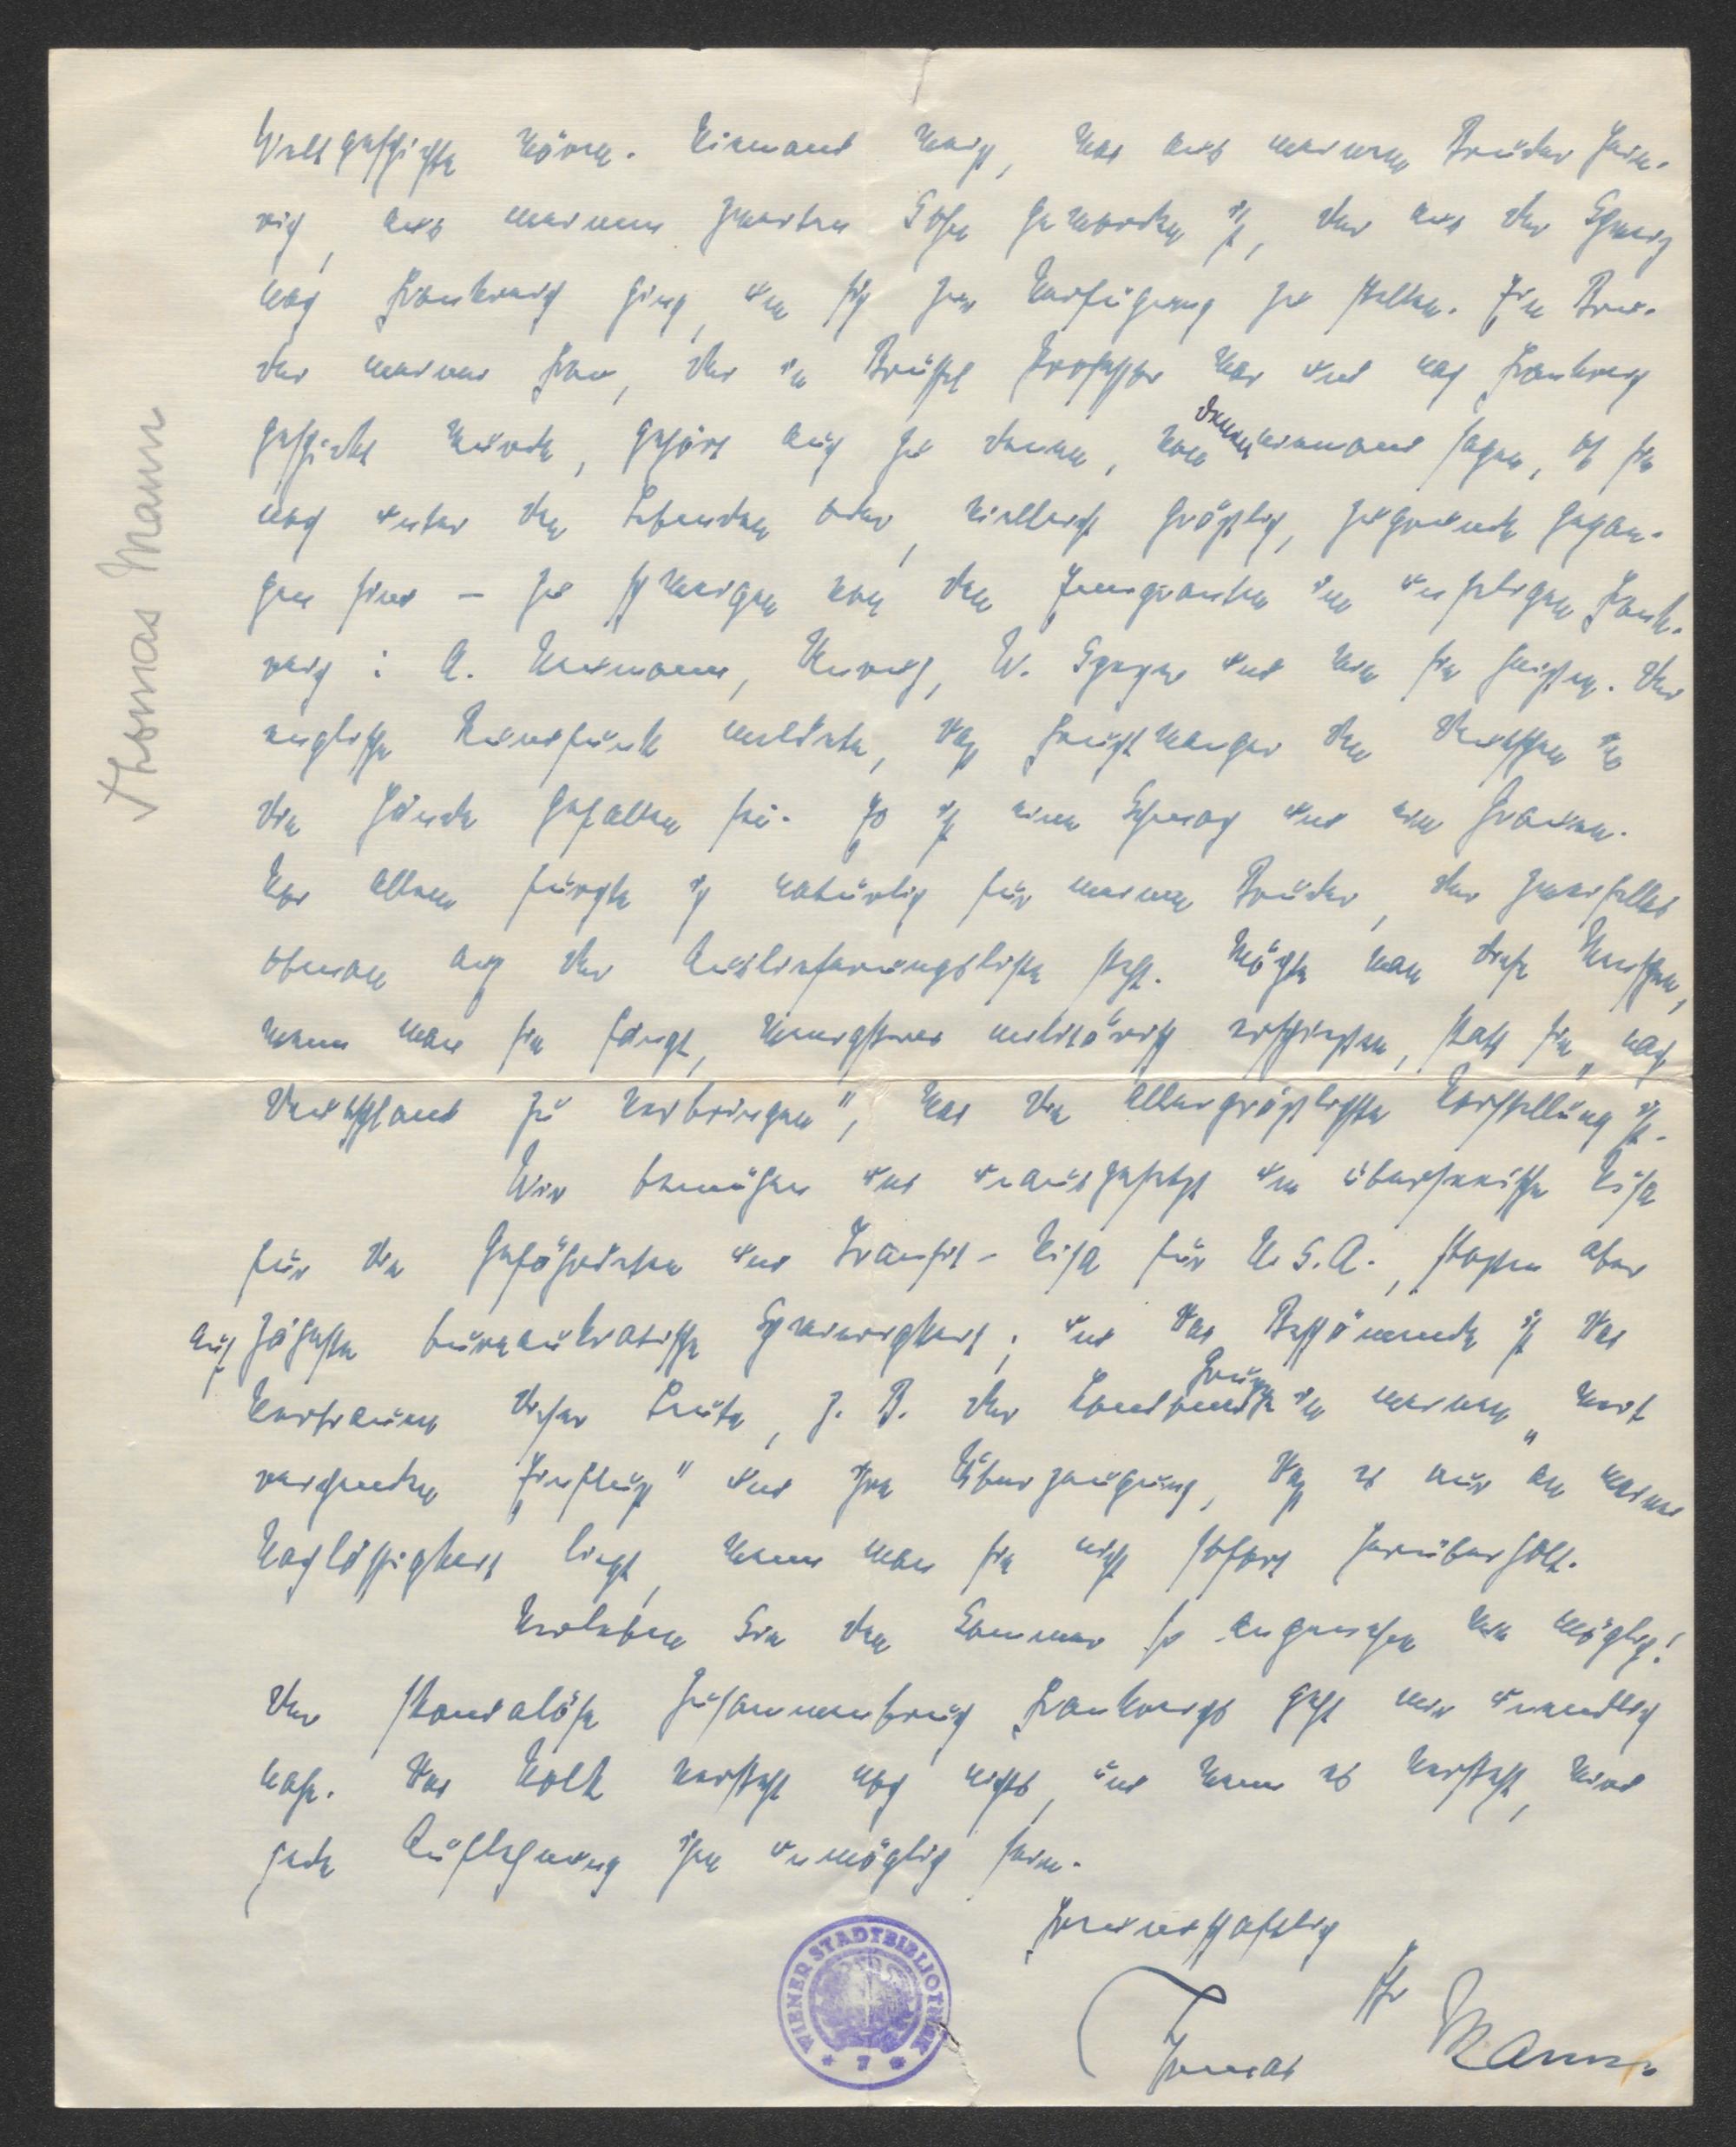 Weltgeschichte wären. Niemand weiß, was aus meinem Bruder Hein-
rich, aus meinem zweiten Sohn geworden ist, der aus der Schweiz
nach Frankreich ging, um sich zur Verfügung zu stellen. Ein Bru-
der meiner Frau, der in Brüssel Professor war und nach Frankreich
geschickt wurde, gehört auch zu denen, von denen niemand sagen, ob sie
noch unter den Lebenden oder, vielleicht gräßlich, zugrunde gegan-
gen sind – zu schweigen von den Emigranten im unseligen Frank-
reich: A. Neumann, W. Speyer und wie sie heißen. Der
englische Rundfunk meldete, daß Feuchtwanger den Deutschen in
die Hände gefallen sei. Es ist eine Schmach und ein Grauen.
Vor allem fürchte ich natürlich für meinen Bruder, der zweifellos
obenan auf der Auslieferungsliste steht. Möchte man diese Menschen,
wenn man sie fängt, wenigstens militärisch erschießen, statt sie „nach
Deutschland zu verbringen", was die allergräßlichste Vorstellung ist.
Wir bemühen uns unausgesetzt um überseeische Visa
für die Gefährdeten und Transit-Visa für U.S.A., stoßen aber
auf zäheste bureaukratische Schwierigkeit; und das Beschämende ist das
Vertrauen dieser Leute, z. B. der Londoner Gruppe in meinen „weit
reichenden Einfluß" und ihre Überzeugung, daß es nur an meiner
Nachlässigkeit liegt, wenn man sie nicht sofort herüberholt.
Verleben Sie den Sommer so angenehm wie möglich!
Der skandalöse Zusammenbruch Frankreichs geht mir unendlich
nahe. Das Volk versteht noch nichts, und wenn es versteht, wird
jede Auflehnung ihm unmöglich sein.
Freundschaftlich
Ihr
Thomas Mann.
Thomas Mann
WIENER STADTBIBLIOTHEK
* 7 *